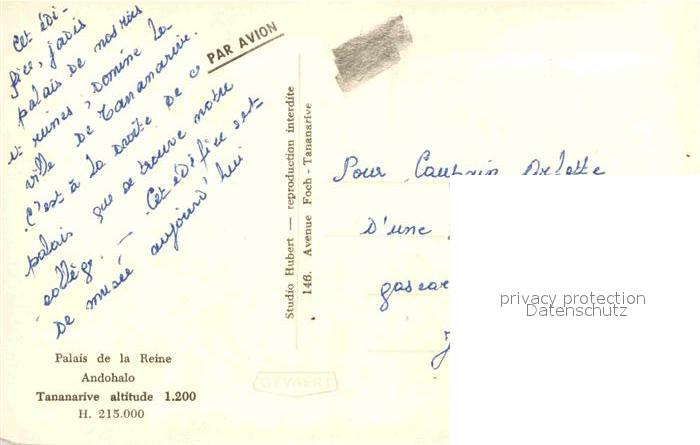 Cet édi-
fice, jadis
palais de nos rois
et reines, domine la
ville de Tananarive.
C'est à la droite de ce
palais que se trouve notre
collège. — Cet édifice est
de musée aujourd'hui
PAR AVION
Studio Hubert — reproduction interdite
146. Avenue Foch - Tananarive
Pour
D'une
gascar
Palais de la Reine
Andohalo
Tananarive altitude 1.200
H. 215.000
GEVAERT
privacy protection
Datenschutz